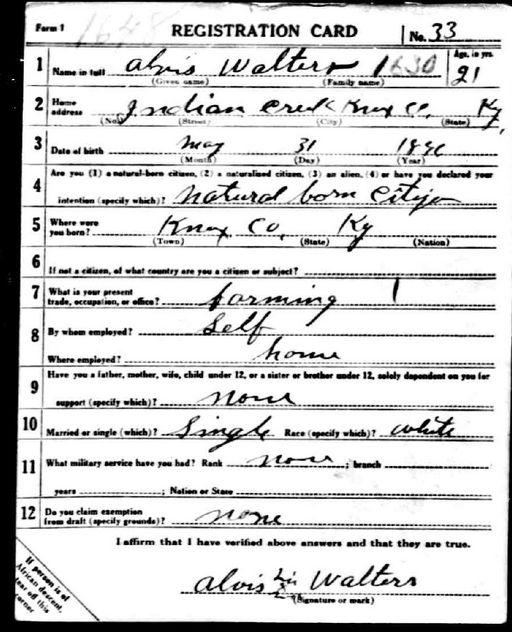 Form 1 1648 REGISTRATION CARD No. 33
1 Name in full Alvis Walters 1630 Age, in yrs. 21
(Given name) (Family name)
2 Home address Indian Creek Knox Co, Ky,
(No.) (Street) (City) (State)
3 Date of birth May 31
(Month) (Day) (Year)
Are you (1) a natural-born citizen, (2) a naturalized citizen, (3) an alien, (4) or have you declared your
4 intention (specify which)? Natural born Citizen
5 Where were you born? Knox Co, Ky
(Town) (State) (Nation)
6 If not a citizen, of what country are you a citizen or subject?
7 What is your present trade, occupation, or office? farming 1
8 By whom employed? Self
Where employed? home
9 Have you a father, mother, wife, child under 12, or a sister or brother under 12, solely dependent on you for
support (specify which)? none
10 Married or single (which)? Single Race (specify which)? white
11 What military service have you had? Rank none ; branch
years ; Nation or State
12 Do you claim exemption from draft (specify grounds)? none
I affirm that I have verified above answers and that they are true.
Alvis his x Walters
(Signature or mark)
If person is of
African descent,
tear off this
corner.